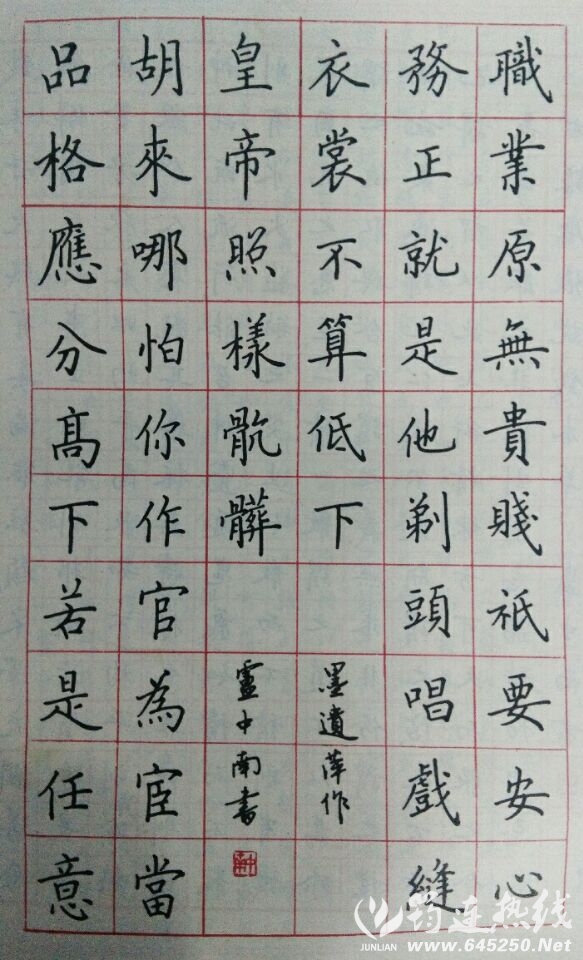 職業原無貴賤祇要安心
務正就是他剃頭唱戲縫
衣裳不算低下
墨遺萍作
品格應分髙下若是任意
胡來哪怕你作官為宦當
皇帝照樣骯髒
中南書
筠连热线
JUNLIAN www.645250.Net